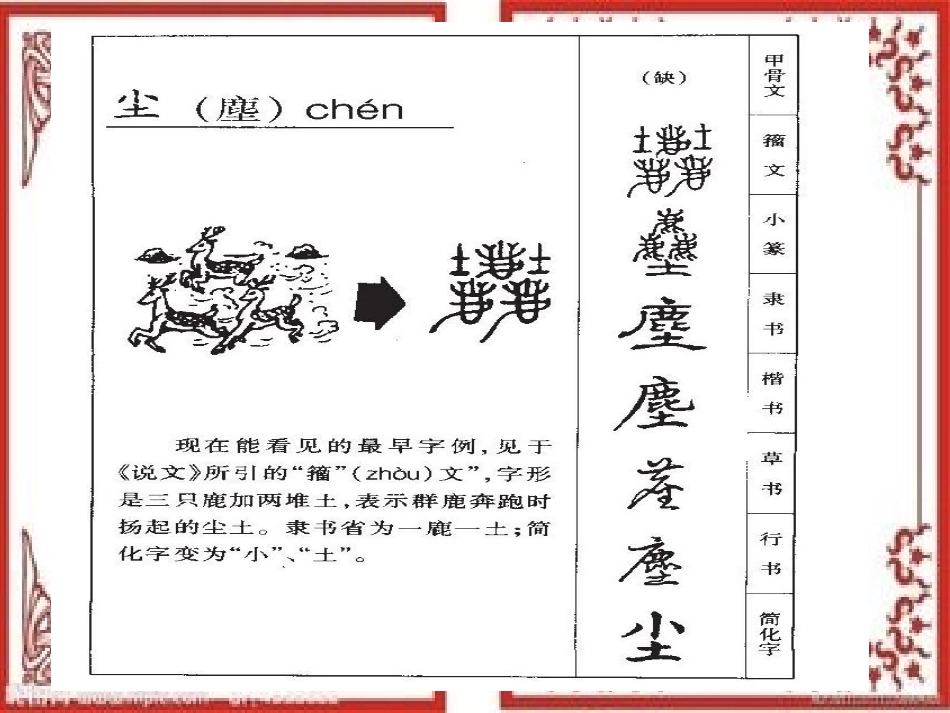 尘（塵）chén
现在能看见的最早字例，见于
《说文》所引的“籀”（zhòu）文”，字形
是三只鹿加两堆土，表示群鹿奔跑时
扬起的尘土。隶书省为一鹿一土；简
化字变为“小”、“土”。
（缺） 甲骨文
籀文
小篆
塵 隶书
塵 楷书
草书
塵 行书
尘 简化字